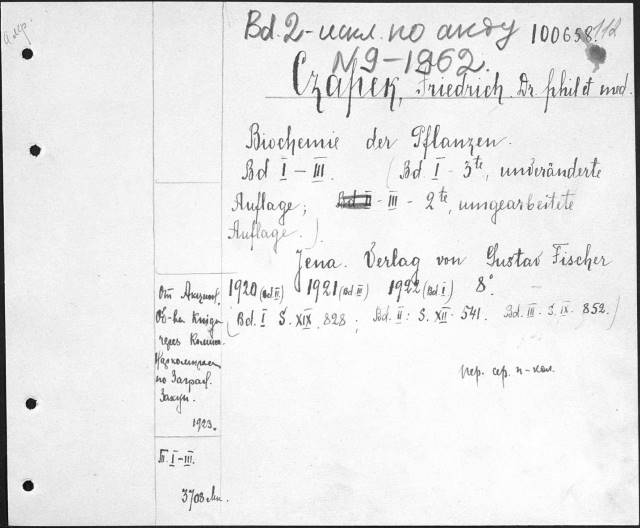 Bd. 2-искл. по акту 100658 112
N9-1962.
Czapek, Friedrich. Dr. phil et med.
Biochemie der Pflanzen.
Bd I-III. (Bd I - 3te, unveränderte
Auflage; Bd II - III - 2te, umgearbeitete
Auflage.)
Jena. Verlag von Gustav Fischer
1920 (Bd II) 1921 (Bd III) 1922 (Bd I) 8°
(Bd. I S. XIX. 828; Bd. II: S. XII. 541. Bd. III. S. IX. 852.)
От Акцион.
Об-ва Книга
через Комис.
по Загран.
Закуп.
1923.
пер. сер. п-кол.
Т. I-III.
3708